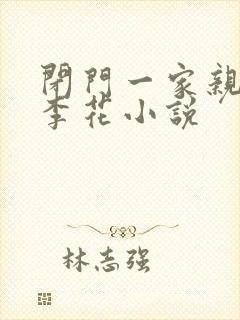 閉門一家親
李花小説
林志强